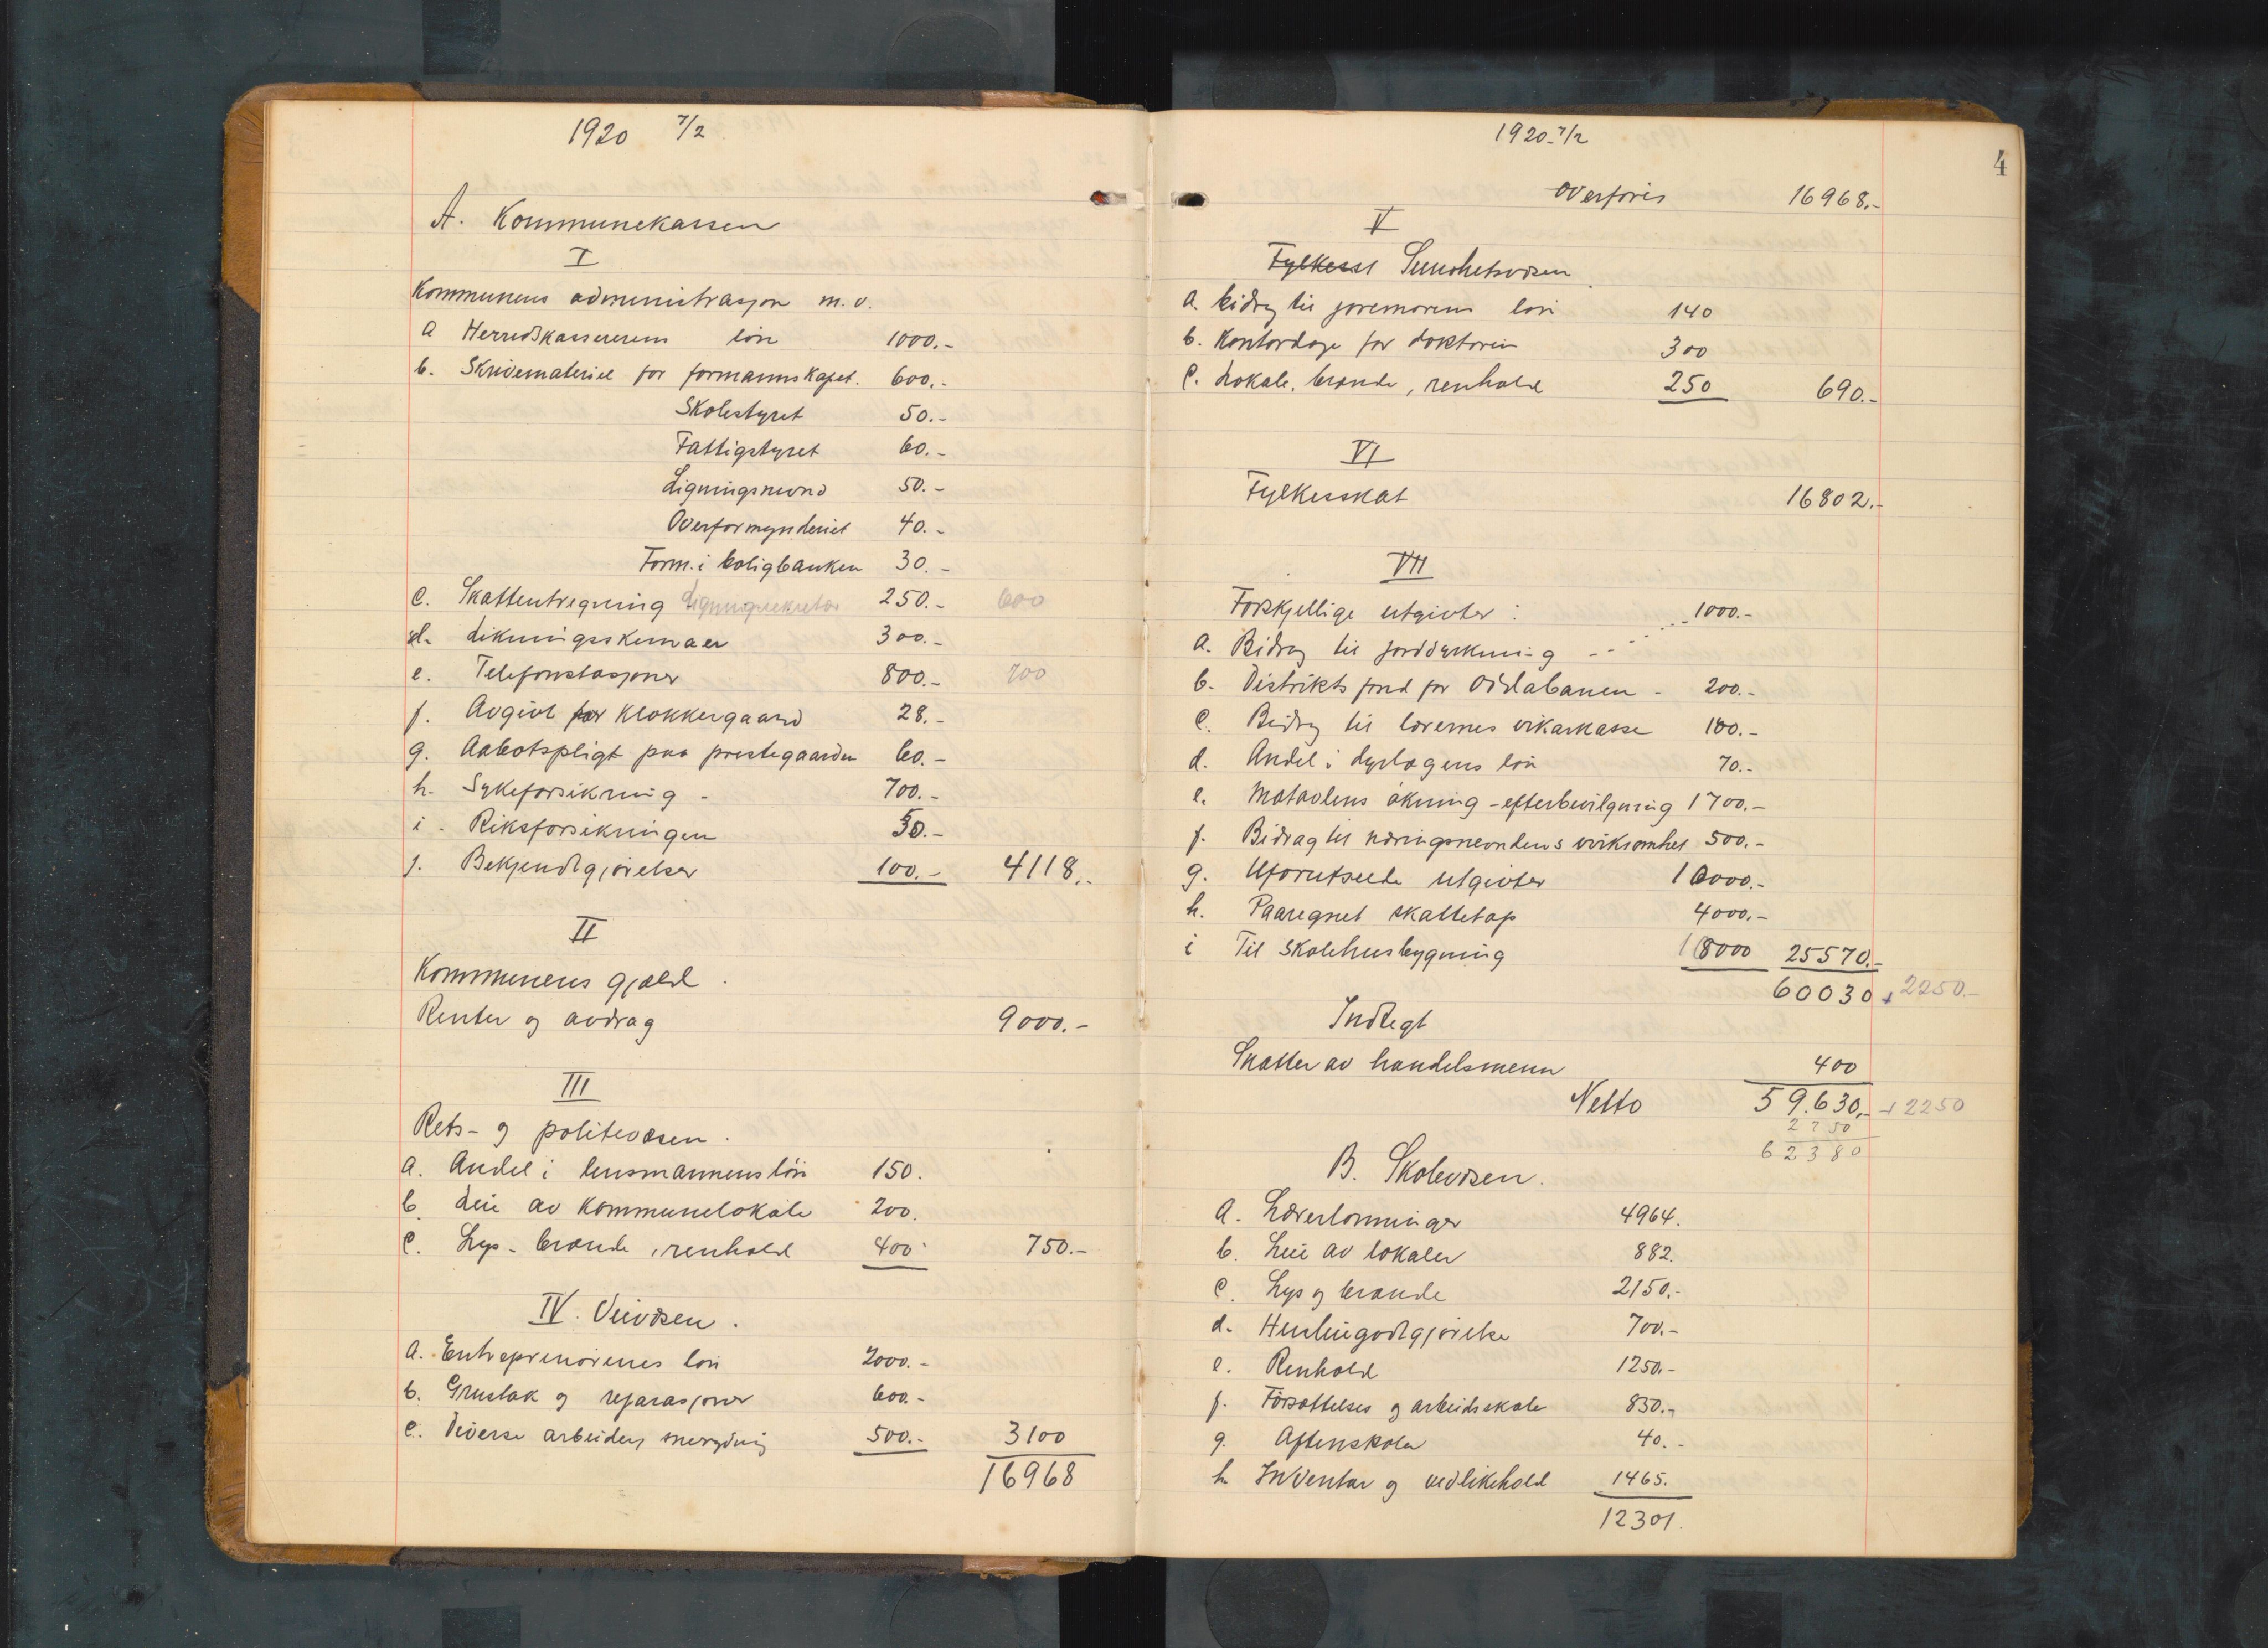 1920 7/2
A. Kommunekassen
I
Kommunens administrasjon m.v.
a Herredskassererens løn 1000.-
b. Skrivemateriel for formannskapet. 600.-
Skolestyret 50.-
Fattigstyret 60.-
Ligningsnevnd 50.-
Overformynderiet 40.-
Form. i boligbanken 30.-
c. Skatteutregning Ligningssekretær 250.- 600
d. Likningsskemaer 300.-
e. Telefonstasjoner 800.- 700
f. Avgivt for Klokkergaard 28.-
g. Aabotspligt paa prestegaarden 60.-
h. Sykeforsikring - 700.-
i. Riksforsikringen 50.-
j. Bekjendtgjørelser 100.- 4118.-
II
Kommunens gjæld.
Renter og avdrag 9000.-
III
Rets- og politivæsen.
a. Andel i lensmannens løn 150.
b. Leie av Kommunelokale 200.
c. Lys- brænde, renhold 400 750.-
IV. Veivæsen.
a. Entreprenørenes løn 2000.-
b. Grustak og reparasjoner 600.-
c. Diverse arbeider, snerydning 500.- 3100
16968
1920. 7/2
4
Overføres 16968.-
V
Fylkesst Sundhetsvæsen
a. bidrag til jormorens løn 140
b. Kontordage for doktoren 300
c. Lokale, brænde, renhold 250 690.-
VI
Fylkesskat 16802.-
VII
Forskjellige utgivter: 1000.-
a. Bidrag til jorddyrkning - -
b. Distrikts fond for Ofdabanen - 200.-
c. Bidrag til lærernes vikarkasse 100.-
d. Andel i dyrlægens løn 70.-
e. Matadlens økning - efterbevilgning 1700.-
f. Bidrag til næringsnevndens virksomhet 500.-
g. Uforutseede utgivter 10000.-
h. Paaregnet skattetap 4000.-
i Til skolehusbygning 8000 25570.-
60030 + 2250.-
Indtegt
Skatter av handelsmenn 400
Netto 59.630.- + 2250
2750
62380
B. Skolevæsen.
a. Lærerlønninger 4964.
b. Leie av lokaler 882.
c. Lys og brænde 2150.-
d. Husleiegodtgjørelse 700.-
e. Renhold 1250.-
f. Forsættelses og arbeidsskole 850.-
g. Aftenskoler 40.-
h Inventar og vedlikehold 1465.
12301.